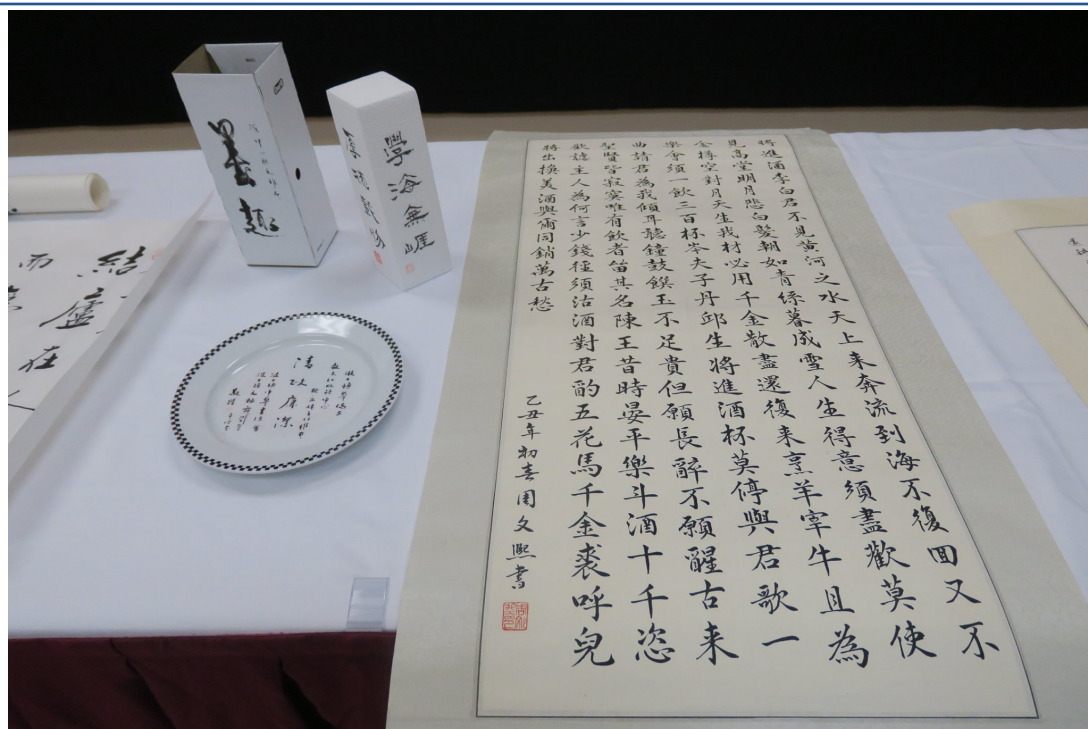 墨趣
厚德載物
學海無崕
結廬在人
而無
將進酒李白君不見黄河之水天上来奔流到海不復回又不
見高堂明月悲白髮朝如青絲暮成雪人生得意須盡歡莫使
金樽空對月天生我材必用千金散盡還復来烹羊宰牛且為
樂會須一飲三百杯岑夫子丹邱生將進酒杯莫停與君歌一
曲請君為我傾耳聽鐘鼓饌玉不足貴但願長醉不願醒古来
聖賢皆寂寞唯有飲者留其名陳王昔時宴平樂斗酒十千恣
歡謔主人為何言少錢徑須沽酒對君酌五花馬千金裘呼兒
將出換美酒與爾同銷萬古愁
乙丑年初春周文熙書